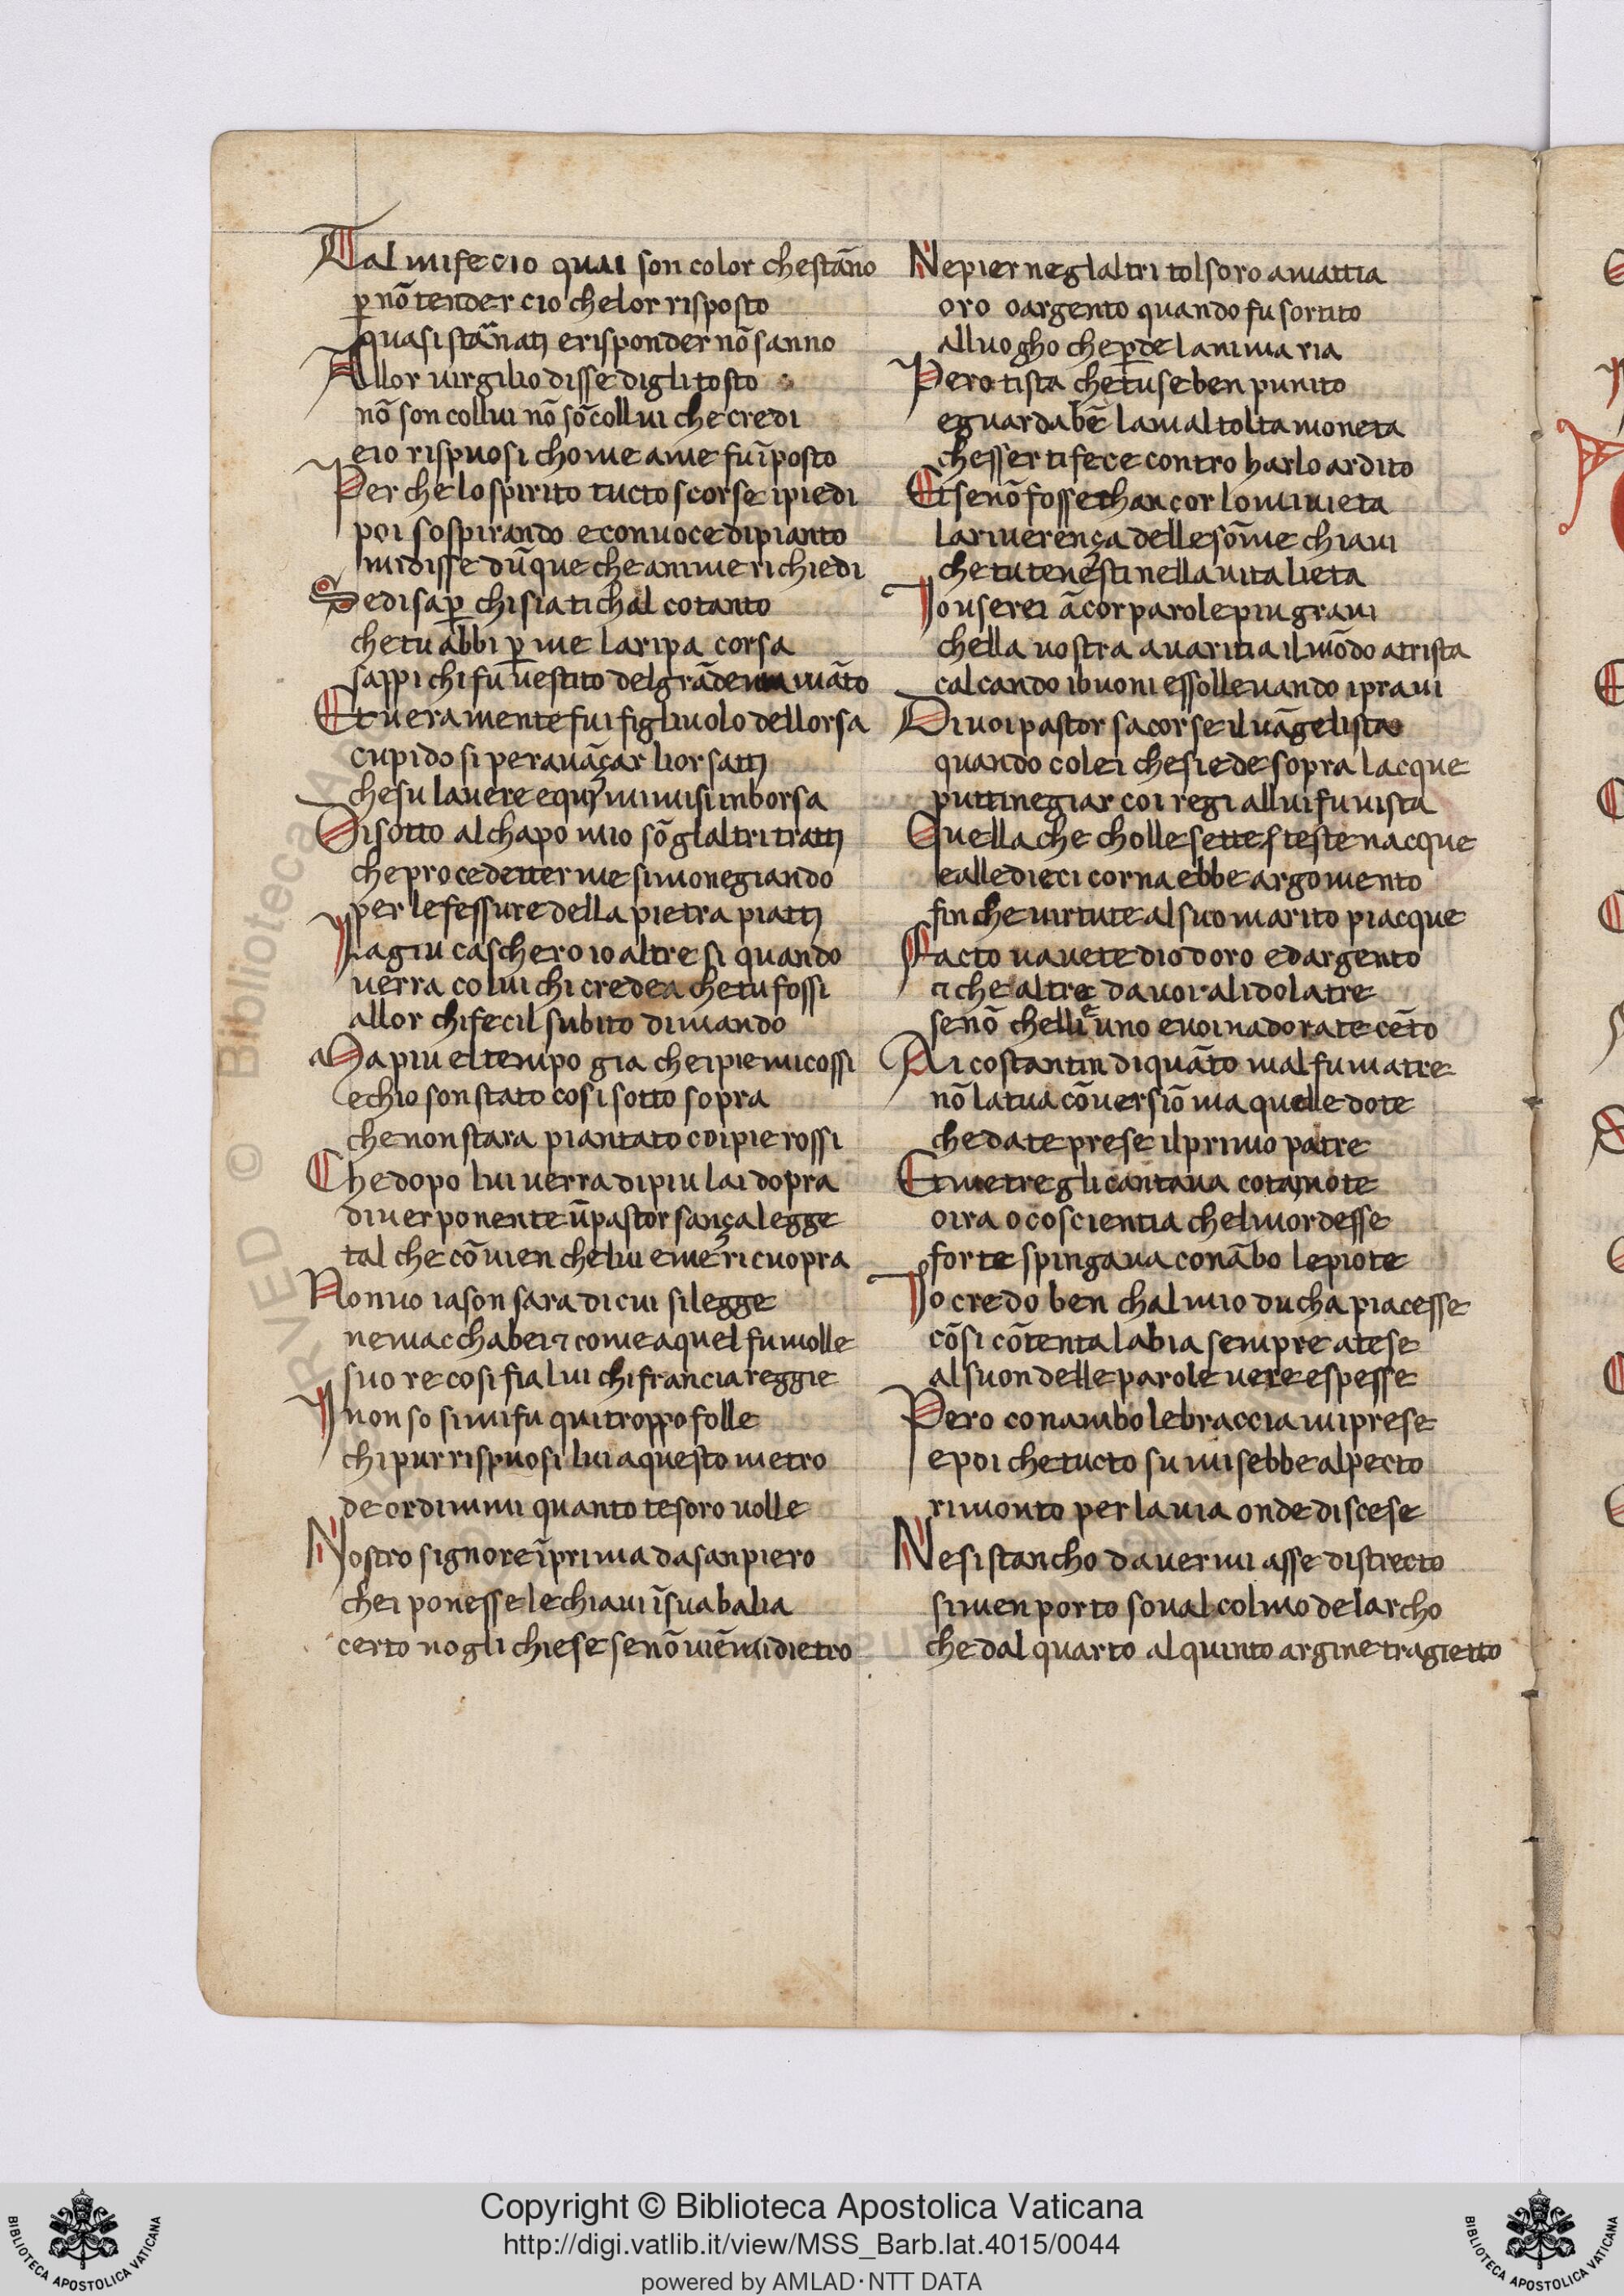 Tal mi fecio quai son color che stãno
p̱ nõ tender cio chelor risposto
quasi stãnatj e risponder nõ sanno
Allor uirgilio disse digli tosto
nõ son collui nõ sõ collui che credi
e io rispuosi chome ame fu ĩposto
Per che lo spirito tucto scorse i piedi
poi sospirando e con uoce di pianto
mi disse dũque che amme richiedi
Se di sap̱ chi sia ti chal cotanto
che tu abbi p̱ me la ripa corsa
sappi chi fu uestito del grãde mãto
Et ueramente fui figliuolo dellorsa
cupido si per auãçar lior sattj
che su lauere e quj mi misi in borsa
Di sotto al chapo mio sõ glaltri trattj
che procedetter me simonegiando
per le fessure della pietra piattj
La giu caschero io altre si quando
uerra colui chi credea che tu fossi
allor chi feci l subito dimando
Ma piu el tempo gia che i pie mi cossi
e chio son stato cosi sotto sopra
che non stara piantato coi pie rossi
Che dopo lui uerra di piu lai dopra
di uer ponente ũ pastor sança legge
tal che cõuien che lui e me ricuopra
Nouuo iason sara di cui si legge
ne macchabei ⁊ come aquel fu molle
suo re cosi fia lui chi francia reggie
I non so si mi fu qui troppo folle
chi pur rispuosi lui a questo metro
de or dimmi quanto tesoro uolle
Nostro signore ĩ prima da san piero
chei ponesse le chiaui ĩ sua balia
certo no gli chiese se nõ uiẽmi dietro
Ne pier ne glaltri tolsoro a mattia
oro o argento quando fu sortito
al luogho che p̱de lanima ria
Pero tista che tu se ben punito
e guarda bẽ la mal tolta moneta
chesser ti fece contro harlo ardito
Et se nõ fosse chancor lo mi uieta
la riuerença delle sõme chiaui
che tu tenesti nella uita lieta
Io userei ãcor parole piu graui
chella uostra auaritia il mõdo atrista
calcando i buoni e ssolleuando i praui
Di uoi pastor sacorse il uãgelista
quando colei che siede sopra lacque
puttinegiar coi regi allui fu uista
Quella che cholle sette teste nacque
e alle dieci corna ebbe argomento
fin che uirtute al suo marito piacque
Facto uauete dio doro e dargento
⁊ che altre da uoi alidolatre
se nõ chelli e uno e uoi nadorate cẽto
Ai costantin di quãto mal fu matre
nõ la tua cõuersiõ ma quelle dote
che da te prese il primo patre
Et metre gli cantaua cotaj note
o ira o coscientia chel mordesse
forte spingaua con ãbo le piote
Io credo ben chal mio ducha piacesse
cõ si cõtenta labia sempre atese
al suon delle parole uere espesse
Pero con ambo le braccia mi prese
e poi che tucto su mi sebbe al pecto
rimonto per la uia onde discese
Ne si stancho dauermi asse distrecto
si men porto soual colmo de larcho
che dal quarto al quinto argine tragietto
Copyright © Biblioteca Apostolica Vaticana
http://digi.vatlib.it/view/MSS_Barb.lat.4015/0044
powered by AMLAD·NTT DATA
BIBLIOTECA APOSTOLICA VATICANA
BIBLIOTECA APOSTOLICA VATICANA